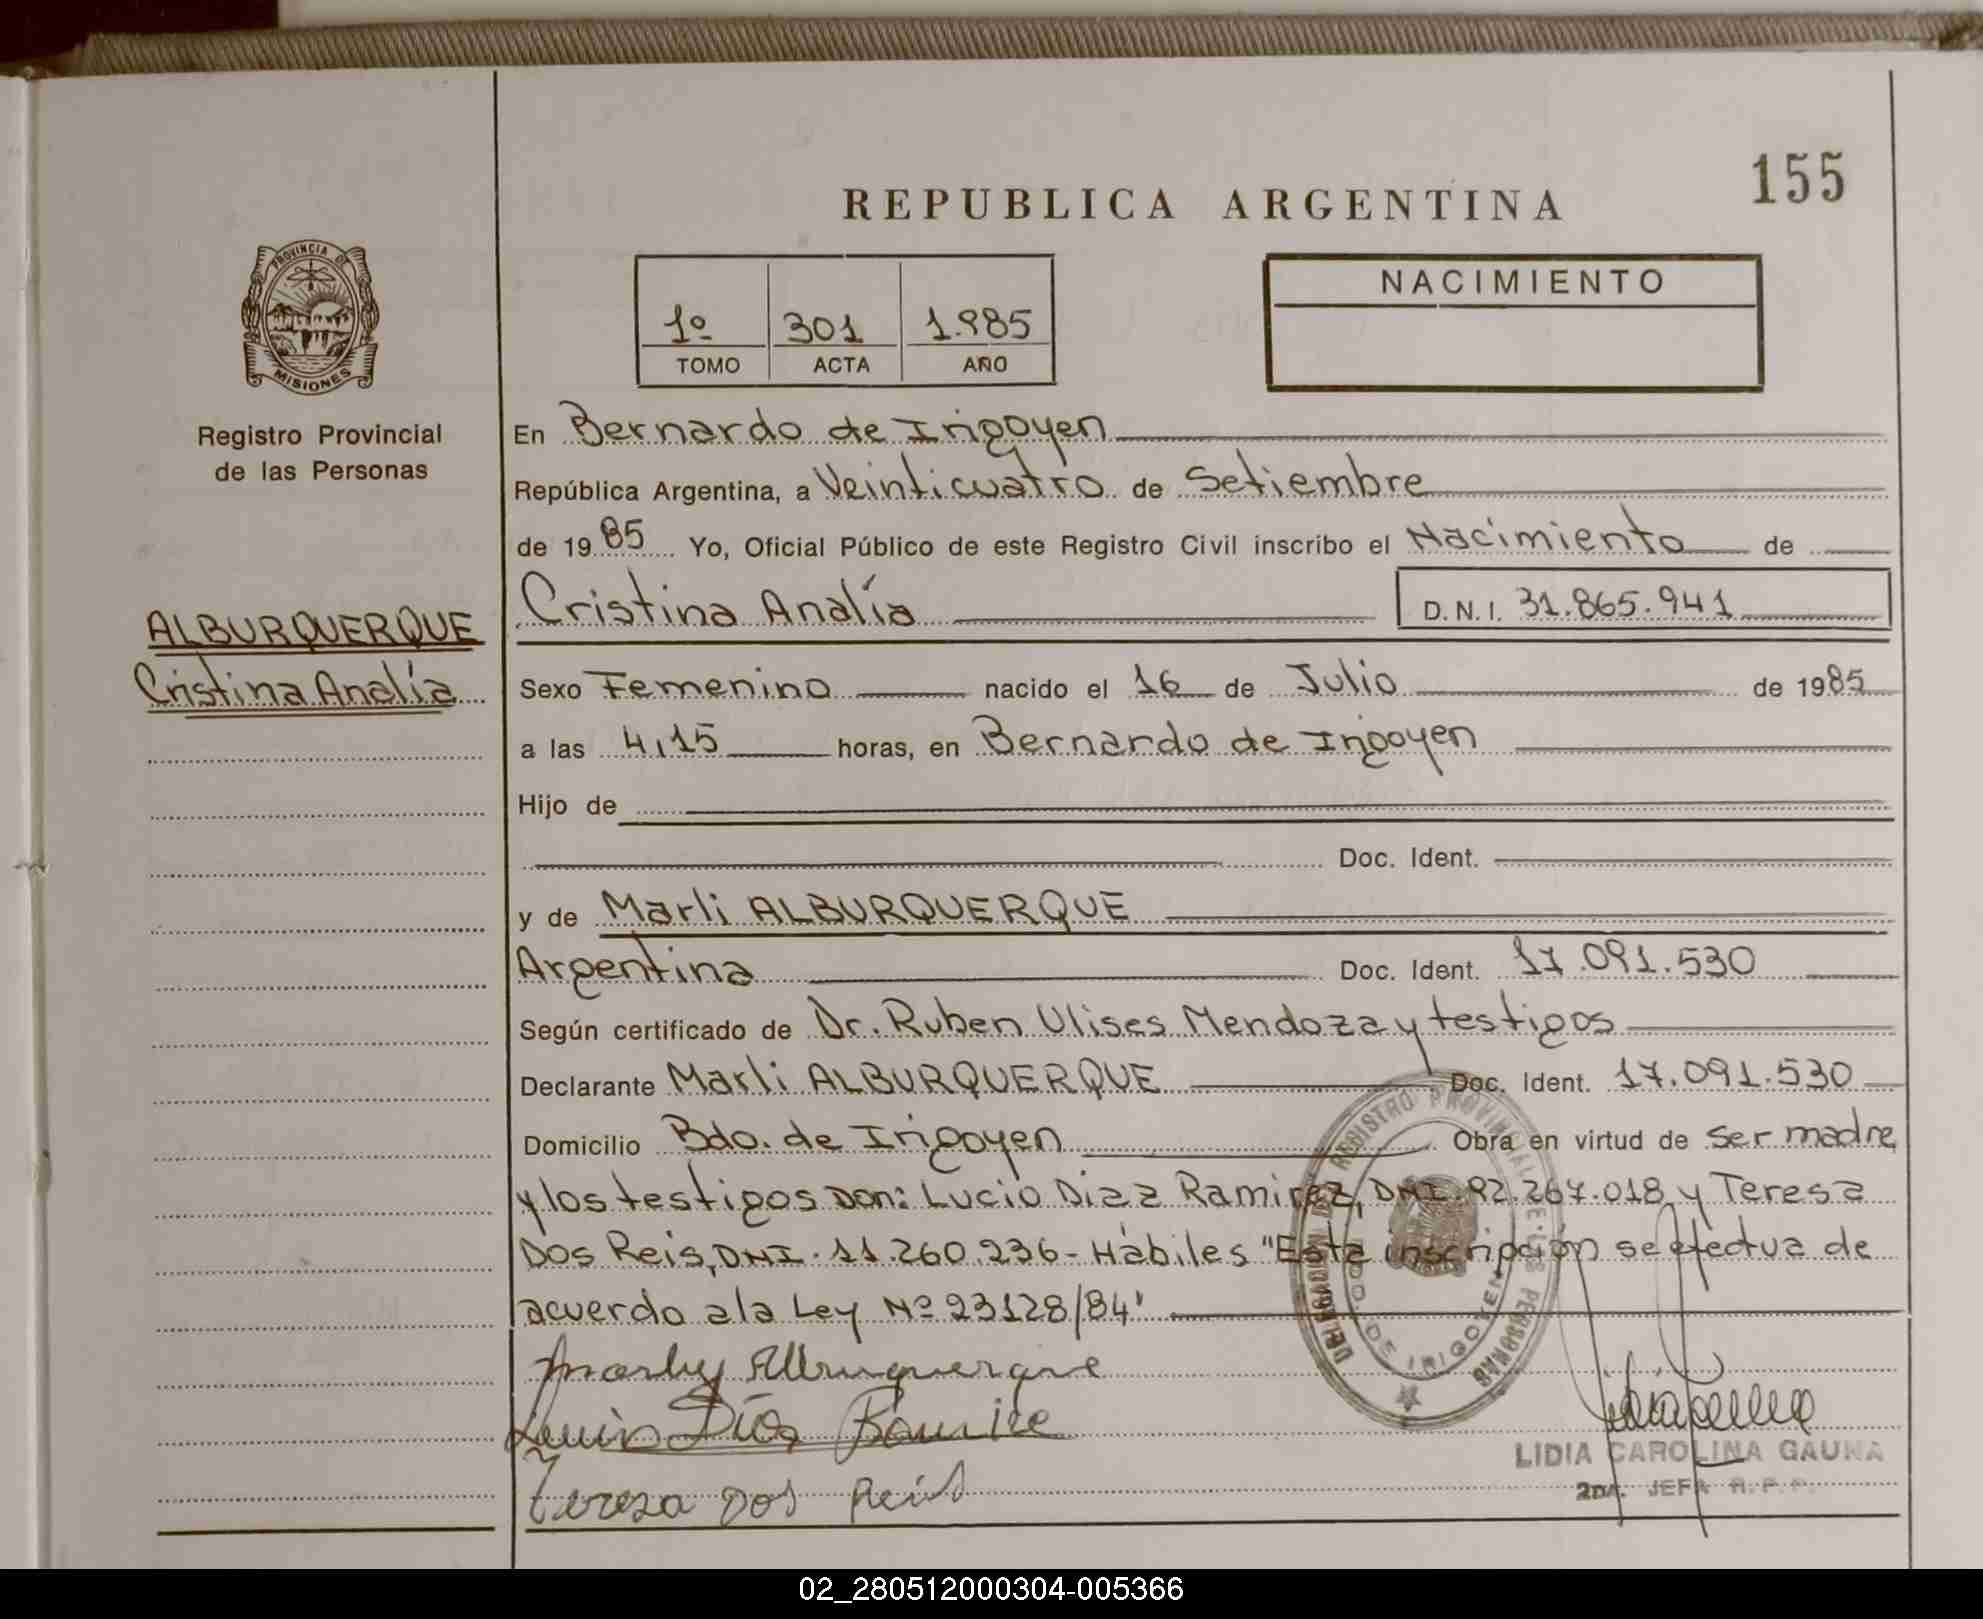 155
REPUBLICA ARGENTINA
PROVINCIA DE
MISIONES
Registro Provincial
de las Personas
1º 301 1.985
TOMO ACTA AÑO
NACIMIENTO
En Bernardo de Irigoyen
República Argentina, a Veinticuatro de Setiembre
de 1985 Yo, Oficial Público de este Registro Civil inscribo el Nacimiento de
ALBURQUERQUE
Cristina Analía
Cristina Analía D.N.I. 31.865.941
Sexo Femenino nacido el 16 de Julio de 1985
a las 4,15 horas, en Bernardo de Irigoyen
Hijo de
Doc. Ident.
y de Marli ALBURQUERQUE
Argentina Doc. Ident. 17.091.530
Según certificado de Dr. Ruben Ulises Mendoza y testigos
Declarante Marli ALBURQUERQUE Doc. Ident. 17.091.530
Domicilio Bdo. de Irigoyen Obra en virtud de ser madre
y los testigos Don: Lucio Diaz Ramirez, DNI. 92.267.018 y Teresa
Dos Reis, DNI. 11.260.236- Hábiles "Esta inscripción se efectua de
acuerdo a la Ley Nº 23128/84'
DELEGACION REGISTRO PROVINCIAL DE LAS PERSONAS
BDO. DE IRIGOYEN
Marly Alburquerque
Lucio Días Ramire
Teresa Dos Reis
LIDIA CAROLINA GAUNA
2DA. JEFA R.P.P.
02_280512000304-005366